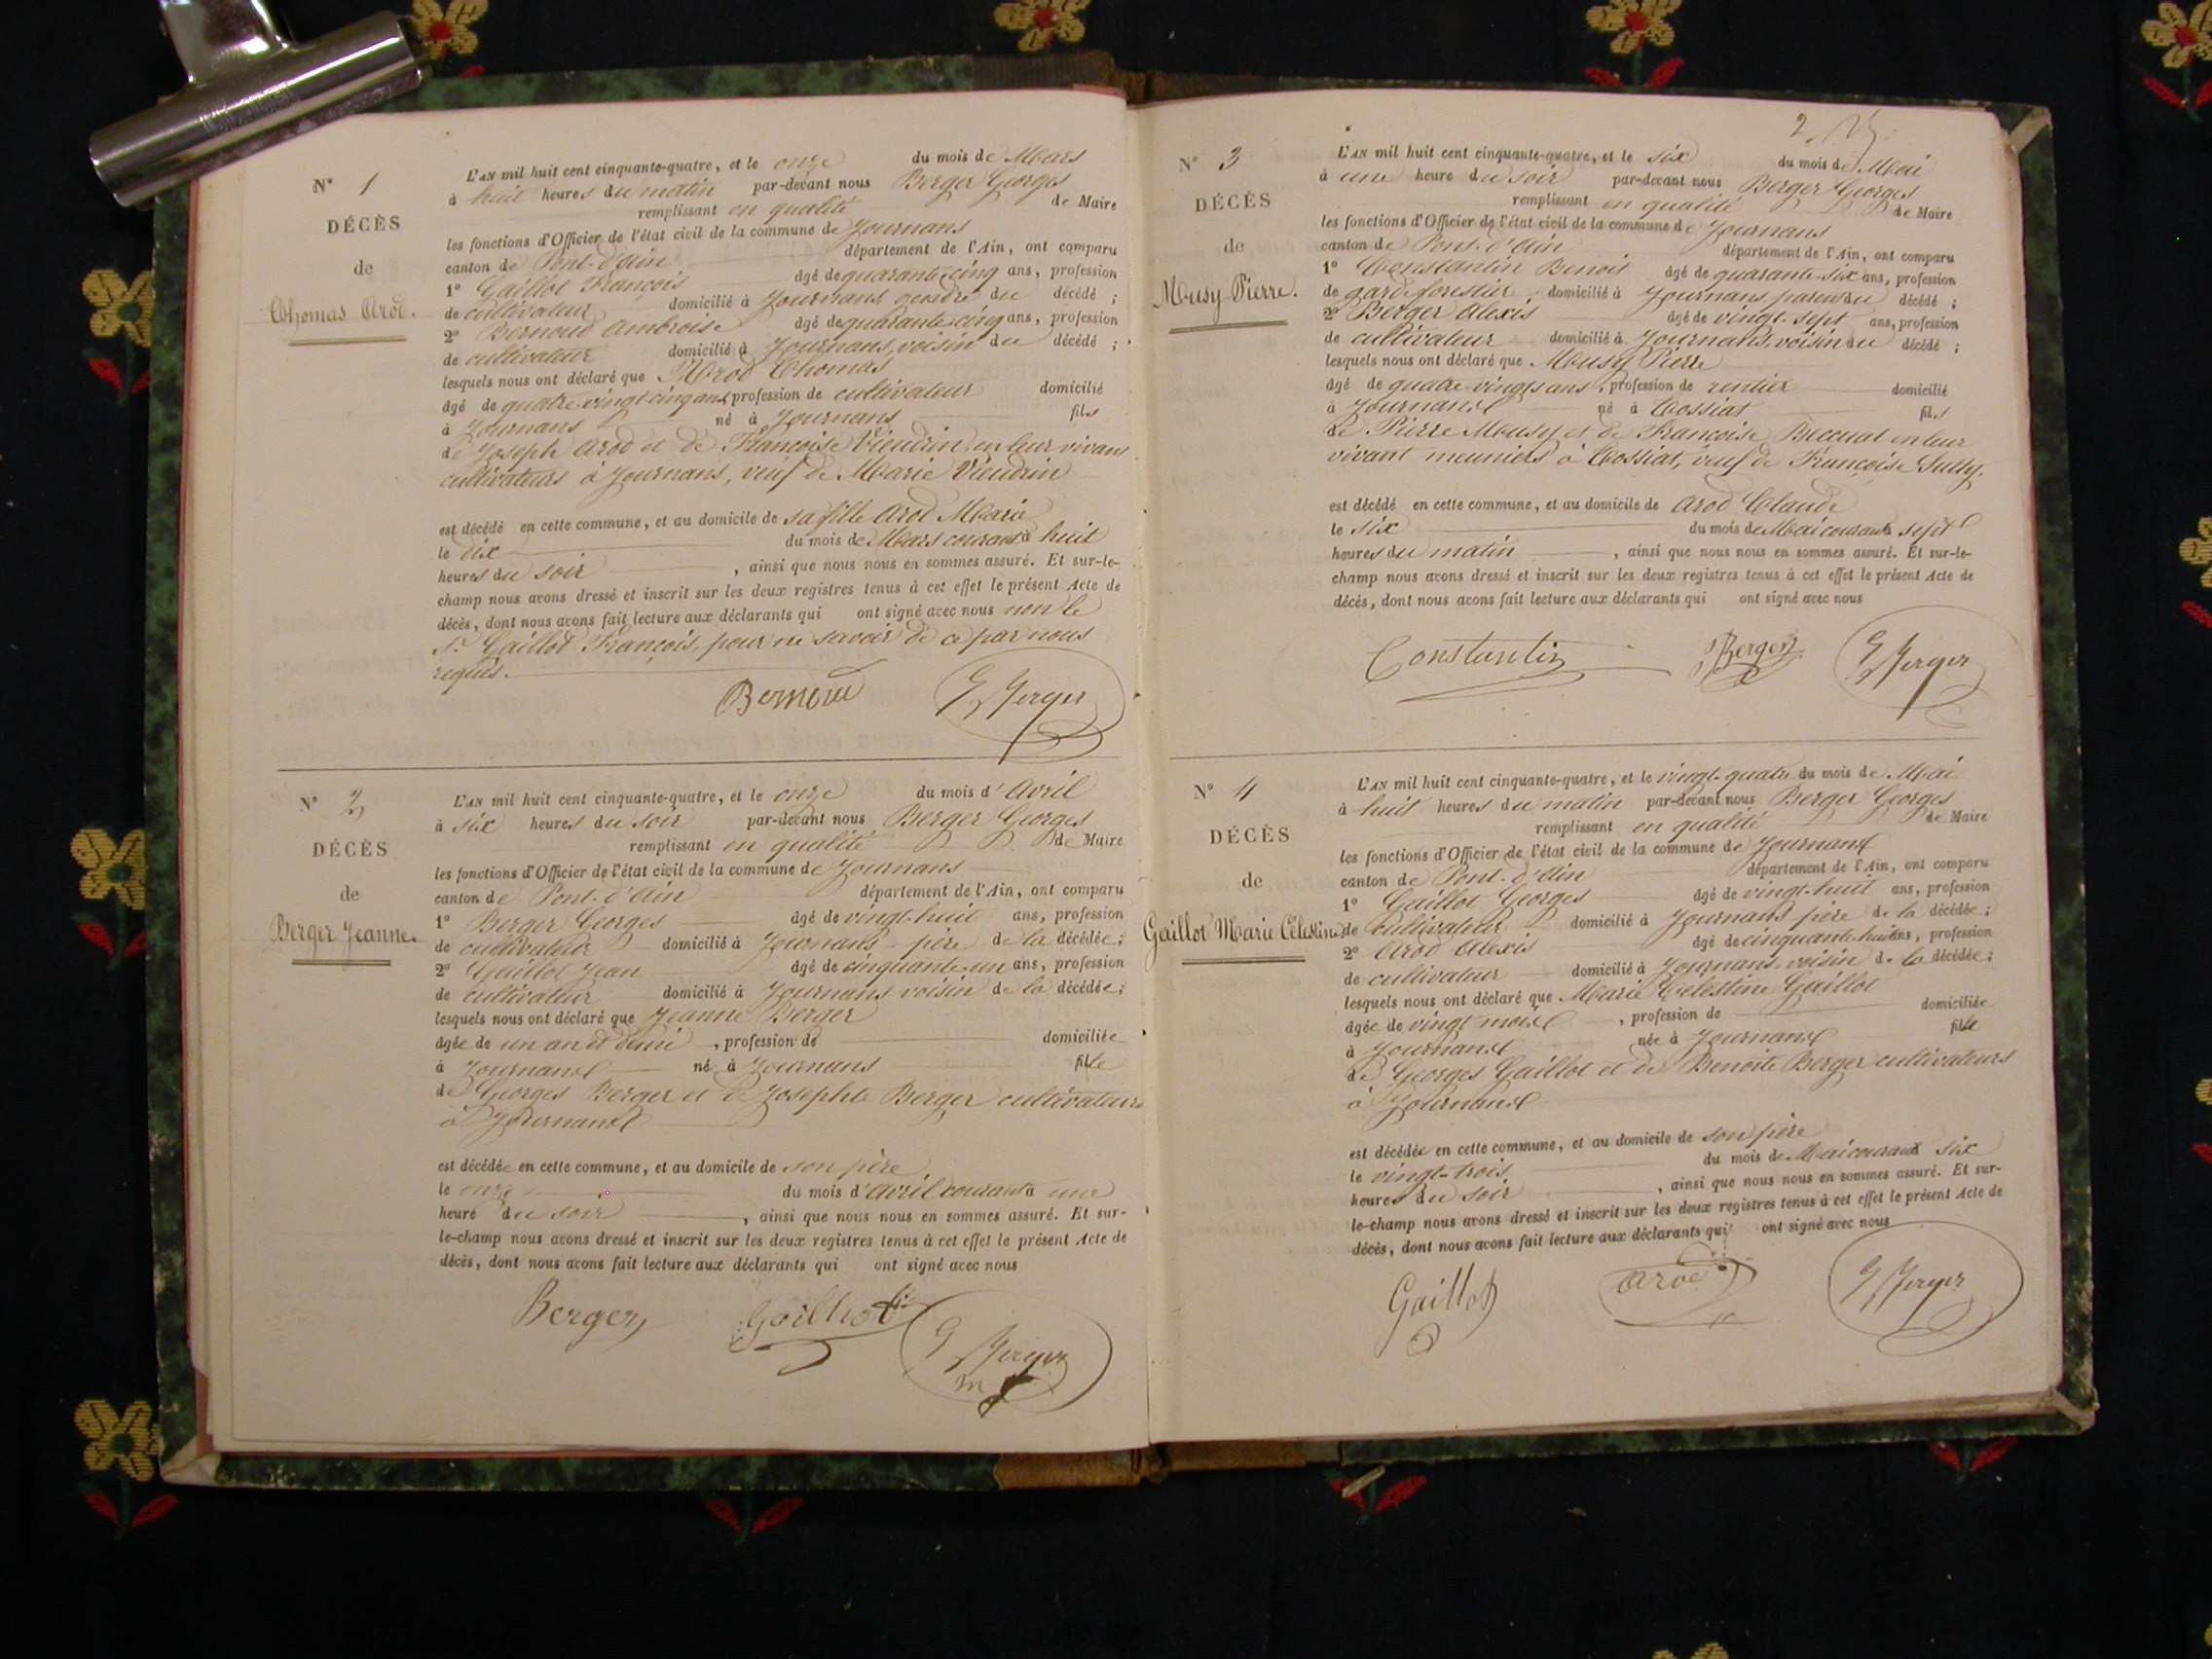 N° 1
DÉCÈS
de
Thomas Arod.
L'AN mil huit cent cinquante-quatre, et le onze du mois de Mars
à huit heures du matin par-devant nous Berger Georges
remplissant en qualité de Maire
les fonctions d'Officier de l'état civil de la commune de Journans
canton de Pont-d'Ain département de l'Ain, ont comparu
1° Gaillot François âgé de quarante cinq ans, profession
de cultivateur domicilié à Journans gendre du décédé ;
2° Bernoud Ambroise âgé de quarante cinq ans, profession
de cultivateur domicilié à Journans, voisin du décédé ;
lesquels nous ont déclaré que Arod Thomas
âgé de quatre-vingt cinq ans, profession de cultivateur domicilié
à Journans né à Journans fils
de Joseph Arod et de Françoise Vieudrin, en leur vivant
cultivateurs à Journans, veuf de Marie Vieudrin
est décédé en cette commune, et au domicile de sa fille Arod Marie
le dix du mois de Mars courant à huit
heures du soir , ainsi que nous nous en sommes assuré. Et sur-le-
champ nous avons dressé et inscrit sur les deux registres tenus à cet effet le présent Acte de
décès, dont nous avons fait lecture aux déclarants qui ont signé avec nous non le
Sr Gaillot François, pour ne savoir de ce par nous
requis.
Bernoud G Berger
N° 2
DÉCÈS
de
Berger Jeanne.
L'AN mil huit cent cinquante-quatre, et le onze du mois d'Avril
à six heures du soir par-devant nous Berger Georges
remplissant en qualité de Maire
les fonctions d'Officier de l'état civil de la commune de Journans
canton de Pont-d'Ain département de l'Ain, ont comparu
1° Berger Georges âgé de vingt-huit ans, profession
de cultivateur domicilié à Journans père de la décédée ;
2° Gaillot Jean âgé de cinquante-un ans, profession
de cultivateur domicilié à Journans voisin de la décédée ;
lesquels nous ont déclaré que Jeanne Berger
âgée de un an et demi , profession de domiciliée
à Journans né à Journans fille
de Georges Berger et de Josephte Berger cultivateurs
à Journans
est décédée en cette commune, et au domicile de son père
le onze du mois d'Avril courant à une
heure du soir , ainsi que nous nous en sommes assuré. Et sur-
le-champ nous avons dressé et inscrit sur les deux registres tenus à cet effet le présent Acte de
décès, dont nous avons fait lecture aux déclarants qui ont signé avec nous
Berger Gaillot G Berger
m
2
N° 3
DÉCÈS
de
Musy Pierre.
L'AN mil huit cent cinquante-quatre, et le six du mois de Mai
à une heure du soir par-devant nous Berger Georges
remplissant en qualité de Maire
les fonctions d'Officier de l'état civil de la commune de Journans
canton de Pont-d'Ain département de l'Ain, ont comparu
1° Constantin Benoit âgé de quarante-six ans, profession
de garde forestier, domicilié à Journans, parent du décédé ;
2° Berger Alexis âgé de vingt-sept ans, profession
de cultivateur domicilié à Journans, voisin du décédé ;
lesquels nous ont déclaré que Musy Pierre
âgé de quatre-vingts ans, profession de rentier domicilié
à Journans né à Tossiat fils
de Pierre Musy et de Françoise en leur
vivant meuniers à Tossiat, veuf de Françoise
est décédé en cette commune, et au domicile de Arod Claude
le six du mois de Mai courant à sept
heures du matin , ainsi que nous nous en sommes assuré. Et sur-le-
champ nous avons dressé et inscrit sur les deux registres tenus à cet effet le présent Acte de
décès, dont nous avons fait lecture aux déclarants qui ont signé avec nous
Constantin Berger G Berger
N° 4
DÉCÈS
de
Gaillot Marie Célestine
L'AN mil huit cent cinquante-quatre, et le vingt-quatre du mois de Mai
à huit heures du matin par-devant nous Berger Georges
remplissant en qualité de Maire
les fonctions d'Officier de l'état civil de la commune de Journans
canton de Pont-d'Ain département de l'Ain, ont comparu
1° Gaillot Georges âgé de vingt-huit ans, profession
de cultivateur domicilié à Journans père de la décédée ;
2° Arod Alexis âgé de cinquante-huit ans, profession
de cultivateur domicilié à Journans, voisin de la décédée ;
lesquels nous ont déclaré que Marie Célestine Gaillot
âgée de vingt mois , profession de domiciliée
à Journans née à Journans fille
de Georges Gaillot et de Benoite Berger cultivateurs
à Journans
est décédée en cette commune, et au domicile de son père
le vingt-trois du mois de Mai courant à six
heures du soir , ainsi que nous nous en sommes assuré. Et sur-
le-champ nous avons dressé et inscrit sur les deux registres tenus à cet effet le présent Acte de
décès, dont nous avons fait lecture aux déclarants qui ont signé avec nous
Gaillot Arod G Berger